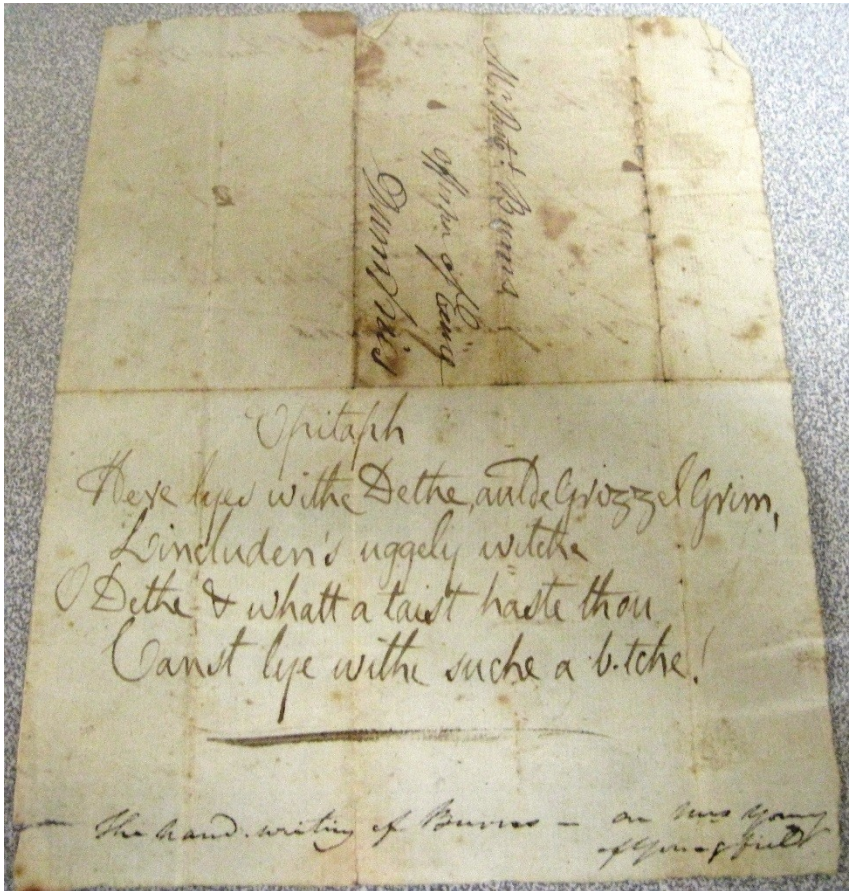 Mr. Robt. Burns
officer of
Dumfries
Epitaph
Here lyes withe Dethe, aulde Grizzel Grim,
Lincluden's uggely witche
O Dethe & whatt a taist haste thou
Canst lye withe suche a b.tche!
The hand-writing of Burns — on Mrs Young
of Youngfield